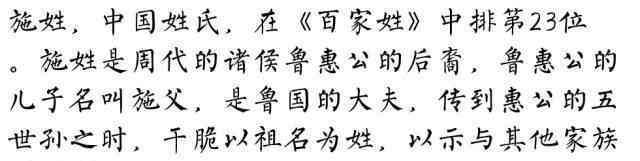 施姓，中国姓氏，在《百家姓》中排第23位
。施姓是周代的诸侯鲁惠公的后裔，鲁惠公的
儿子名叫施父，是鲁国的大夫，传到惠公的五
世孙之时，干脆以祖名为姓，以示与其他家族